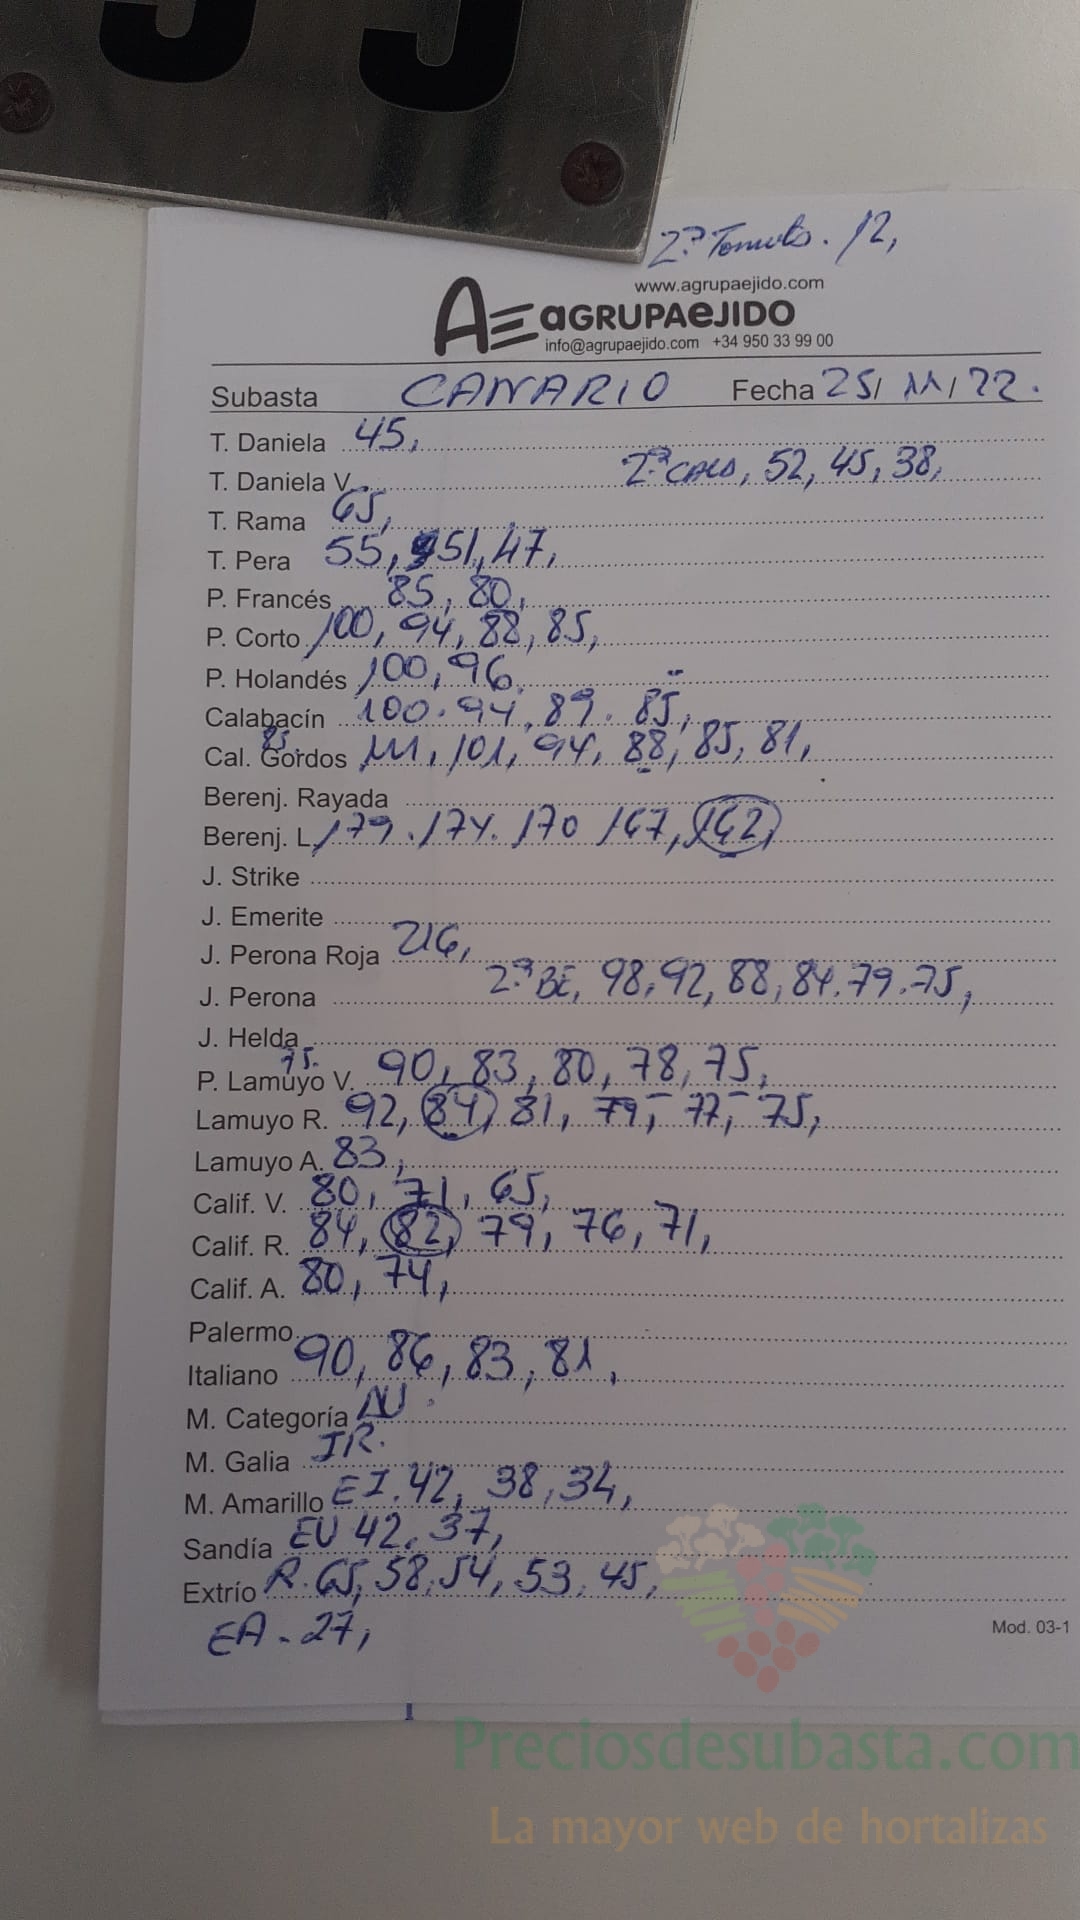 2ª Tomate. 12,
www.agrupaejido.com
AE aGRUPAeJIDO
info@agrupaejido.com +34 950 33 99 00
Subasta CANARIO Fecha 25/11/22.
T. Daniela 45,
T. Daniela V. 2ª CALA, 52, 45, 38,
T. Rama 65,
T. Pera 55, 51, 47,
P. Francés 85, 80,
P. Corto 100, 94, 88, 85,
P. Holandés 100, 96.
Calabacín 100. 94, 89. 85,
85.
Cal. Gordos 111, 101, 94, 88, 85, 81,
Berenj. Rayada
Berenj. L. 179. 174. 170 167, 162,
J. Strike
J. Emerite
J. Perona Roja 216,
J. Perona 2ª BE, 98, 92, 88, 84. 79. 75,
J. Helda
75.
P. Lamuyo V. 90, 83, 80, 78, 75,
Lamuyo R. 92, 84, 81, 79, 77, 75,
Lamuyo A. 83,
Calif. V. 80, 71, 65,
Calif. R. 84, 82, 79, 76, 71,
Calif. A. 80, 74,
Palermo
Italiano 90, 86, 83, 81,
M. Categoría
M. Galia JR.
M. Amarillo EI. 42, 38, 34,
Sandía EV 42. 37,
Extrío R. 65, 58, 54, 53, 45,
EA - 27,
Mod. 03-1
Preciosdesubasta.com
La mayor web de hortalizas